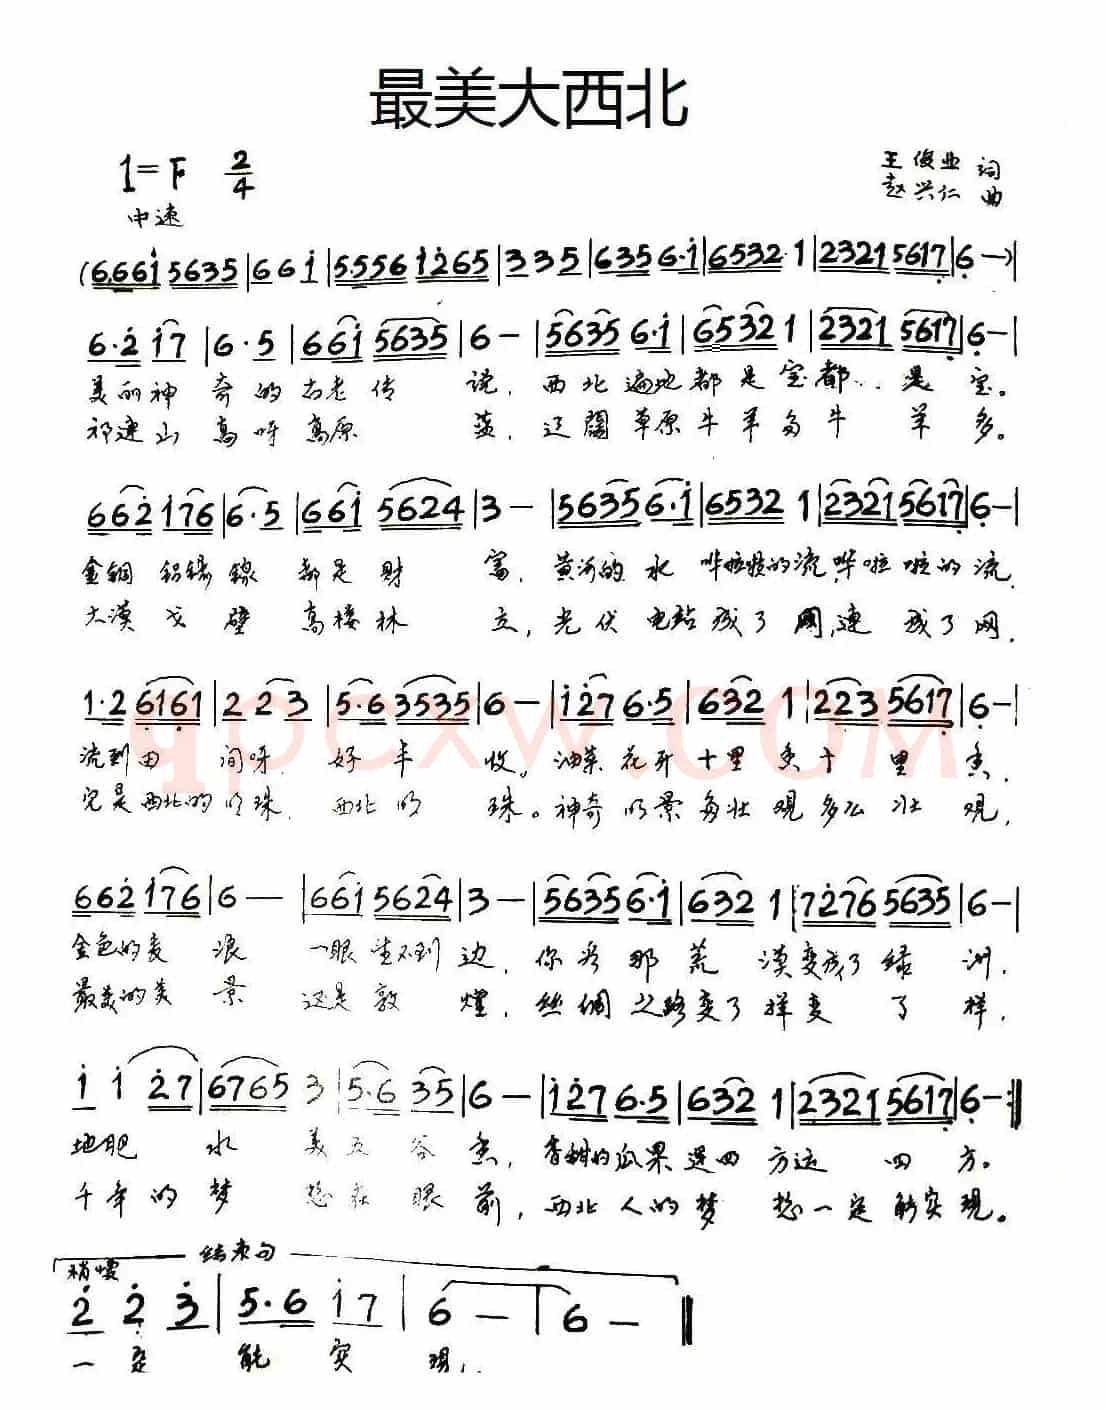 最美大西北
1=F 2/4
王俊业 词
赵兴仁 曲
中速
(6.661 5635|661|5.556 1265|335|635 6.1|6532 1|2321 5617|6—)|
6.2 17|6.5|661 5635|6—|5635 6.1|6532 1|2321 5617|6—|
美丽神奇的古老传说，西北遍地都是宝都..是宝。
祁连山高呀高原蓝，辽阔草原牛羊多牛羊多。
662 176|6.5|661 5624|3—|5635 6.1|6532 1|2321 5617|6—|
金铜铝锡镍都是财富，黄河的水哗啦啦的流，哗啦啦的流，
大漠戈壁高楼林立，光伏电站成了网，连成了网，
1.2 6161|2 23|5.6 3535|6—|127 6.5|632 1|223 5617|6—|
流到田间呀好丰收。油菜花开十里香十里香，
它是西北的明珠，西北的珠。神奇的景多壮观多么壮观，
662 176|6—|661 5624|3—|5635 6.1|632 1|7276 5635|6—|
金色的麦浪一眼望不到边，你看那荒漠变成了绿洲，
最美的美景还是敦煌，丝绸之路变了样变了样，
1 1 27|6765 3|5.6 35|6—|127 6.5|632 1|2321 5617|6—:‖
地肥水美五谷香，香甜的瓜果送四方运四方。
千年的梦想在眼前，西北人的梦想一定能实现。
结束句
稍慢
2 2 3|5.6 17|6—|6—‖
一定能实现，
qpcxw.COM